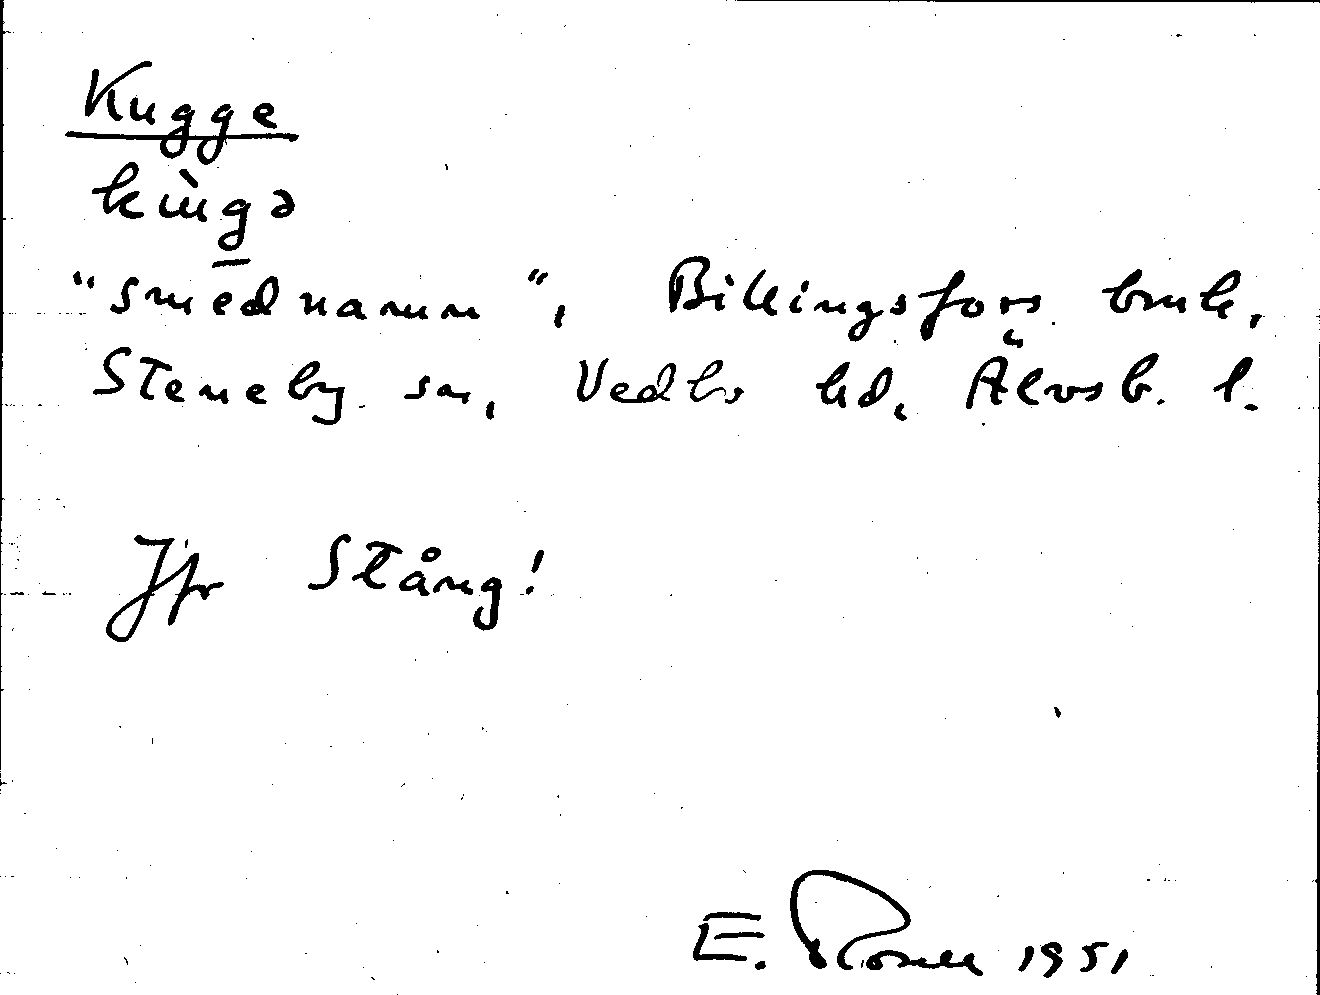 Kugge
kùgə
"smēdnamn", Billingsfors bruk,
Steneby sn, Vedbo hd, Älvsb. l.
Jfr Stång!
E. Rosell 1951